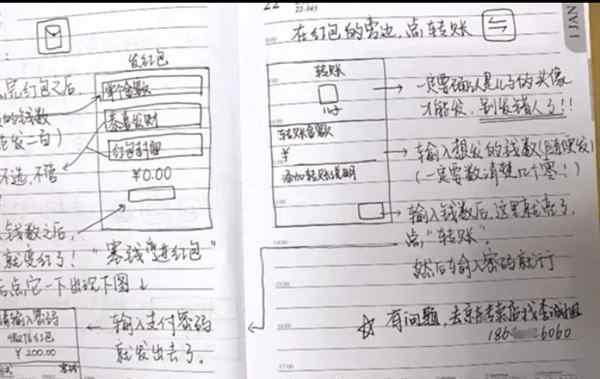 发红包
点完红包之后
单个金额
的钱数
恭喜发财
发一百)
红包封面
不选,不管
¥0.00
钱数之后,
就变红了! "塞钱进红包"
后点它一下出现下图↓
请输入密码
微信红包
¥200.00
输入支付密码
就发出去了。
22
JAN
在红包的旁边,点转账
转账
一定要确认是儿子的头像
才能发,别发错人了!!
儿子
转账金额
¥
输入想发的钱数
(一定要数清楚几个零!)
添加转账说明
输入钱数后,这里就亮了,
点"转账"。
然后输入密码就行
☆ 有问题,去京东专卖店找
186 6060
17:00